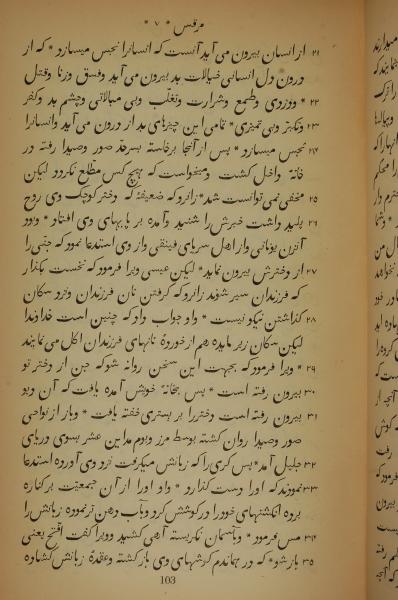 مرقس * ۷ *
۲۱ از انسان بیرون می آید آنست که انسانرا نجس میسازد * که از
درون دل انسانی خیالات بد بیرون می آید وفسق وزنا وقتل
۲۲ * ودزدی وطمع وشرارت وتغلب وبی مبالاتی وچشم بد وکفر
۲۳ وتکبر وبی تمیزی * تمامی این چیزهای بد از درون می آید وانسانرا
۲۴ نجس میسازد * پس از آنجا برخاسته بسرحد صور وصیدا رفته در
خانهٔ داخل کشت ومیخواست که هیچ کس مطلع نکردد لیکن
۲۵ مخفی نمی توانست شد * زانرو که ضعیفهٔ که دختر کوچک وی روح
۲۶ پلید داشت خبرش را شنید وآمده بر پایهای وی افتاد * وبود
آنزن یونانی واز اهل سریای فینقی واز وی استدعا نمود که جنّی را
۲۷ از دخترش بیرون نماید * لیکن عیسی ویرا فرمود که نخست بکذار
که فرزندان سیر شوند زانرو که کرفتن نان فرزندان ونزد سکان
۲۸ کذاشتن نیکو نیست * واو جواب داد که چنین است خداوندا
لیکن سکان زیر مایده هم از خوردهٔ نانهای فرزندان اکل می نمایند
۲۹ * ویرا فرمود که بجهت این سخن روانه شو که جن از دختر تو
۳۰ بیرون رفته است * پس بخانهٔ خویش آمده یافت که آن دیو
۳۱ بیرون رفته است ودختر را بر بستری خفته یافت * وباز از نواحی
صور وصیدا روان کشته بوسط مرز وبوم مداین عشر بسوی دریای
۳۲ جلیل آمد * پس کری را که زبانش میکرفت نزد وی آورده استدعا
۳۳ نمودند که اورا دست کذارد * واو اورا از آن جمعیّت برکناره
برده انکشتهای خودرا در کوشش کرد وبآب دهن تر نموده زبانش را
۳۴ مس فرمود * وبآسمان نکریسته آهی کشید وویرا کفت افتح یعنی
۳۵ باز شو * که در همان دم کوشهای وی باز کشته وعقدهٔ زبانش کشاده
103